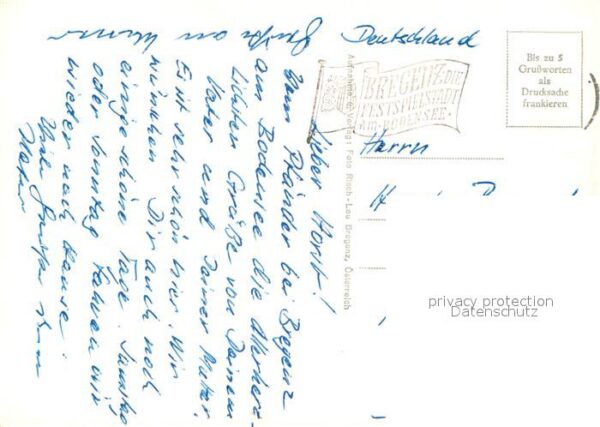 Lieber Horst!
Vom Pfänder bei Bregenz
am Bodensee die allerherz-
lichsten Grüße von Deinem
Vater und Deiner Mutter.
Es ist sehr schön hier. Wir
wünschen Dir auch noch
einige schöne Tage. Samstag
oder Sonntag fahren wir
wieder nach Hause.
Viele Grüße
Vater
Grüße an
Deutschland
BREGENZ, DIE
FESTSPIELSTADT
AM BODENSEE
Bis zu 5
Grußworten
als
Drucksache
frankieren
Herrn
H D
Foto Risch-Lau Bregenz, Österreich
privacy protection
Datenschutz